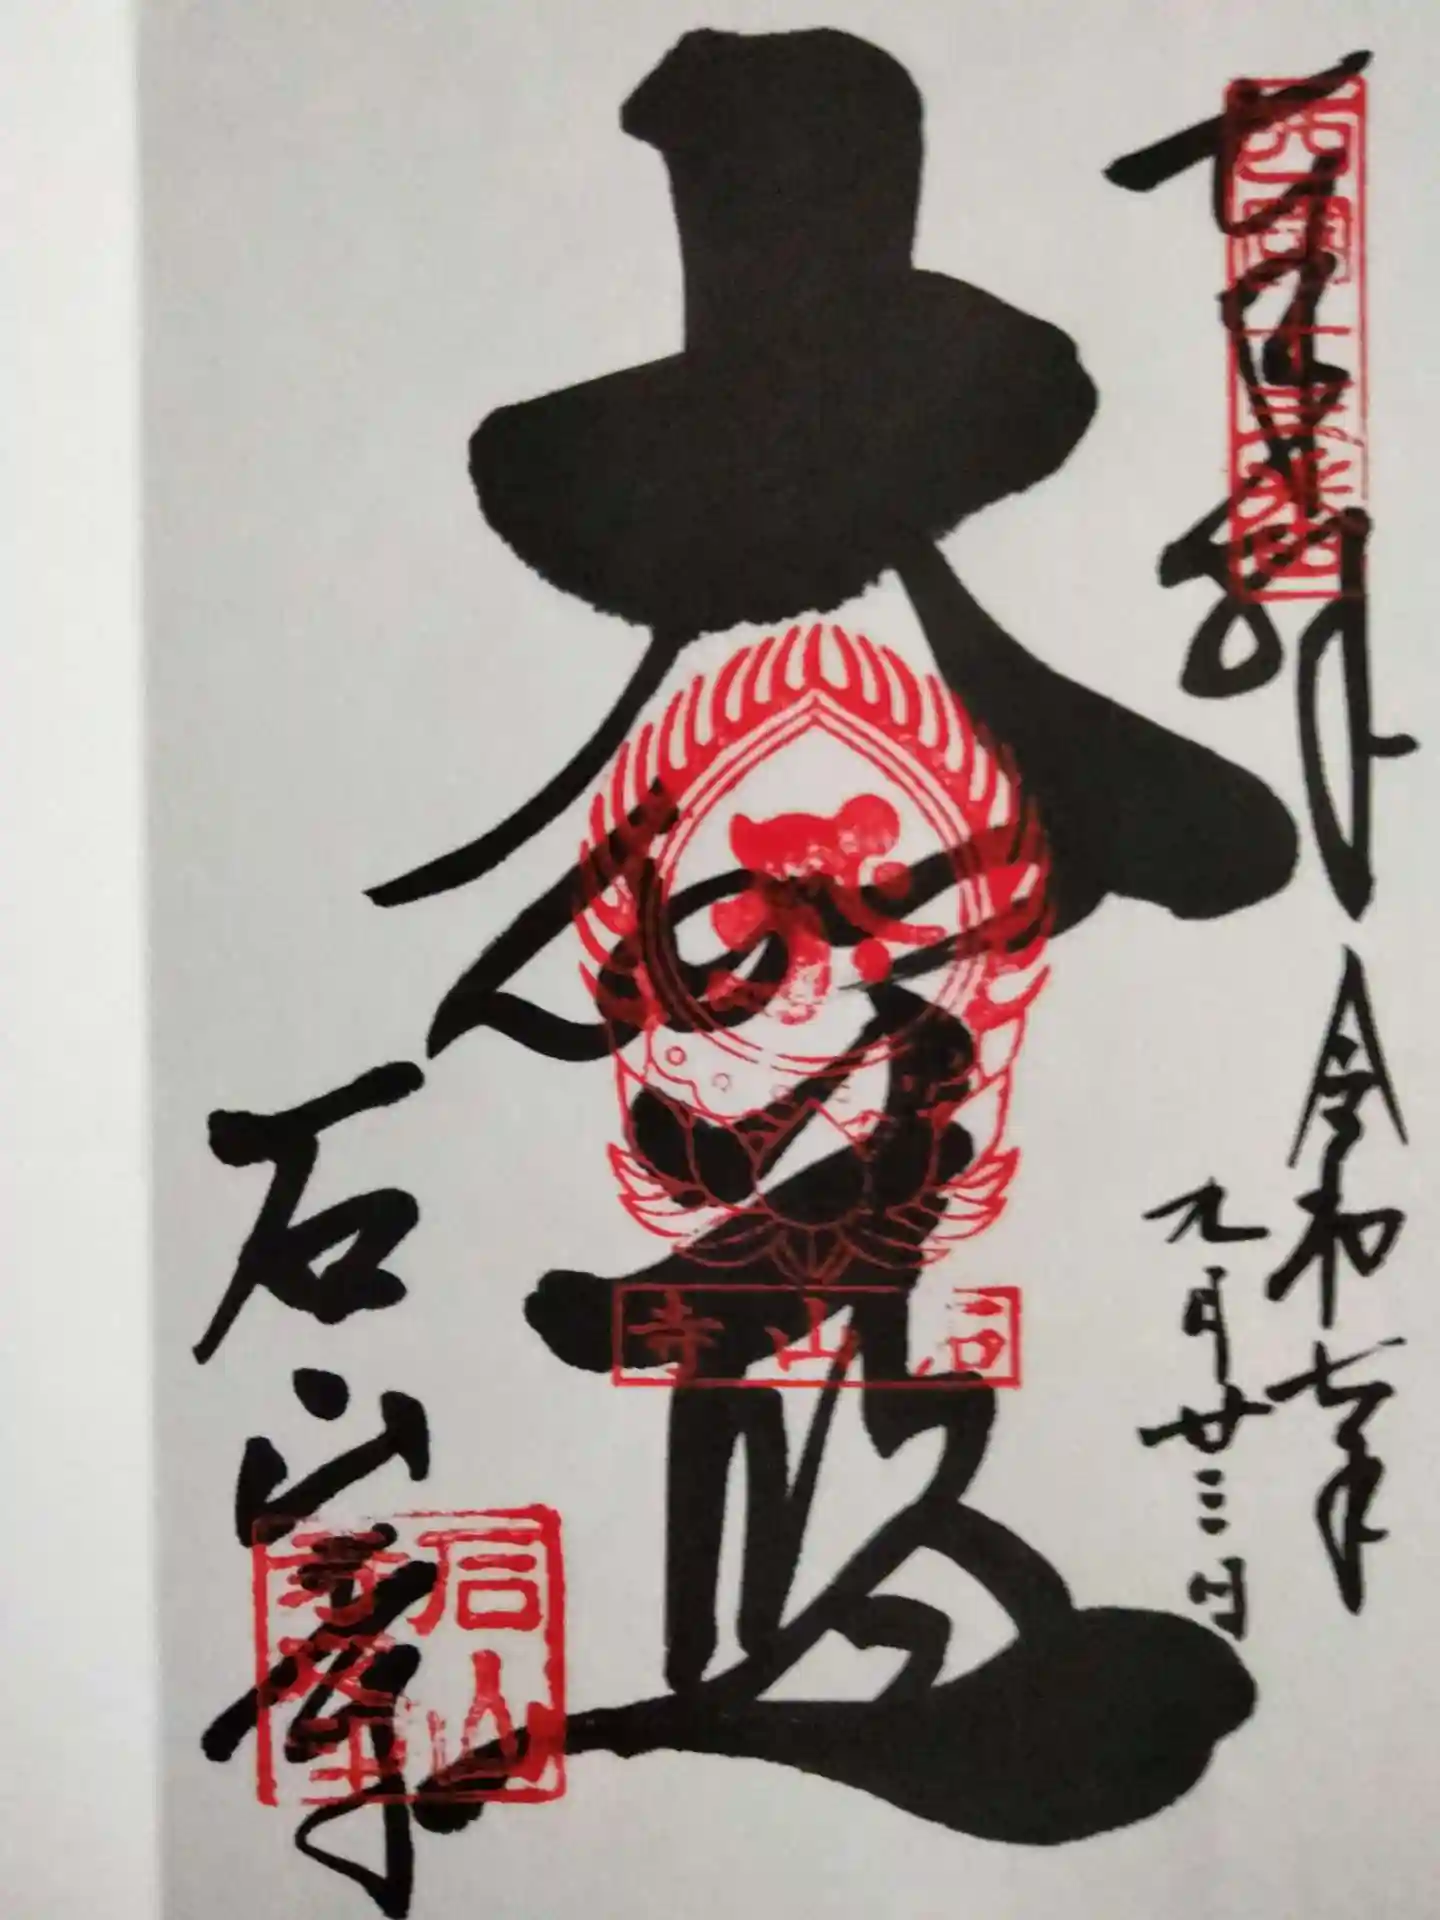 西国十三番
奉拝
令和七年
九月廿三日
大伽藍
石山寺
石山寺
石山寺印